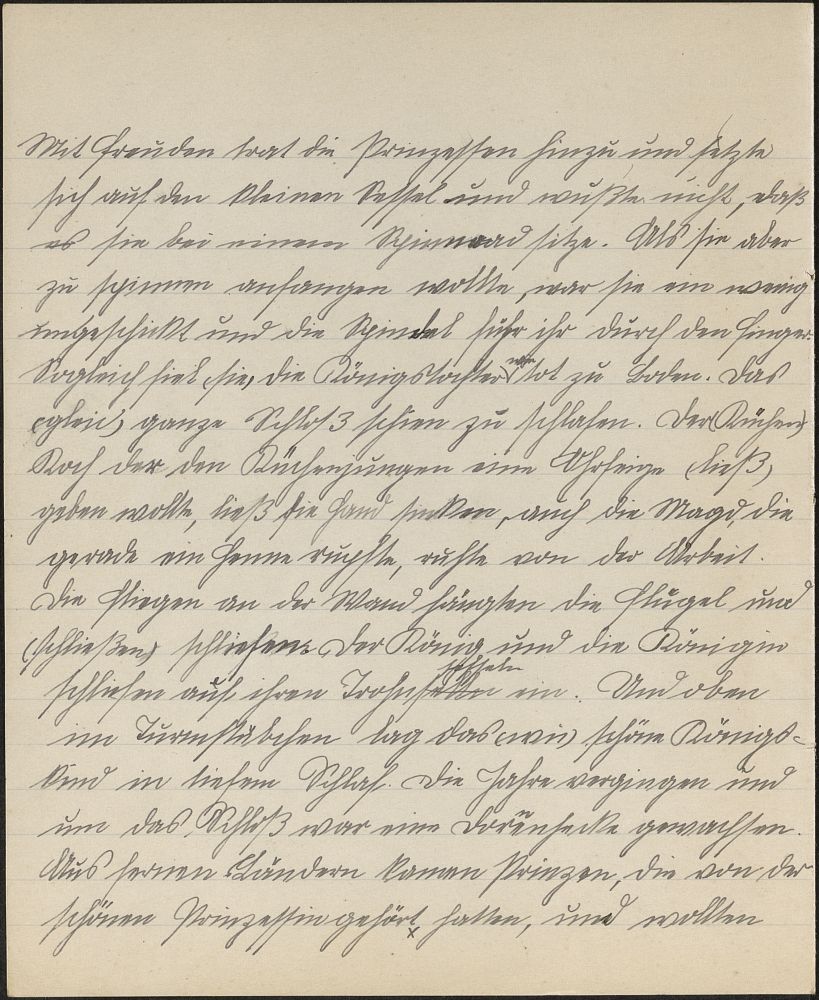 Mit Freuden trat die Prinzessin hinzu und setzte
sich auf den kleinen Sessel und wußte nicht, daß
es sie bei einem Spinnrad sitze. Als sie aber
zu spinnen anfangen wollte, war sie ein wenig
ungeschickt und die Spindel fuhr ihr durch den Finger.
Sogleich fiel, sie, die Königstochter wie tot zu Boden. Das
(gleich) ganze Schloß schien zu schlafen. Der (Küchen)
Koch der den Küchenjungen eine Ohrfeige (ließ)
geben wollte, ließ die Hand sinken, auch die Magd, die
gerade ein Henne rupfte, ruhte von der Arbeit.
Die Fliegen an der Wand hängten die Flügel und
(schließen) schliefen. Der König und die Königin
schliefen auf ihren Trohnsesseln ein. Und oben
im Turmstübchen lag das (wie) schöne Königs=
kind in tiefem Schlaf. Die Jahre vergingen und
um das Schloß war eine Dornenhecke gewachsen.
Aus fernen Ländern kamen Prinzen, die von der
schönen Prinzessin gehört hatten, und wollten